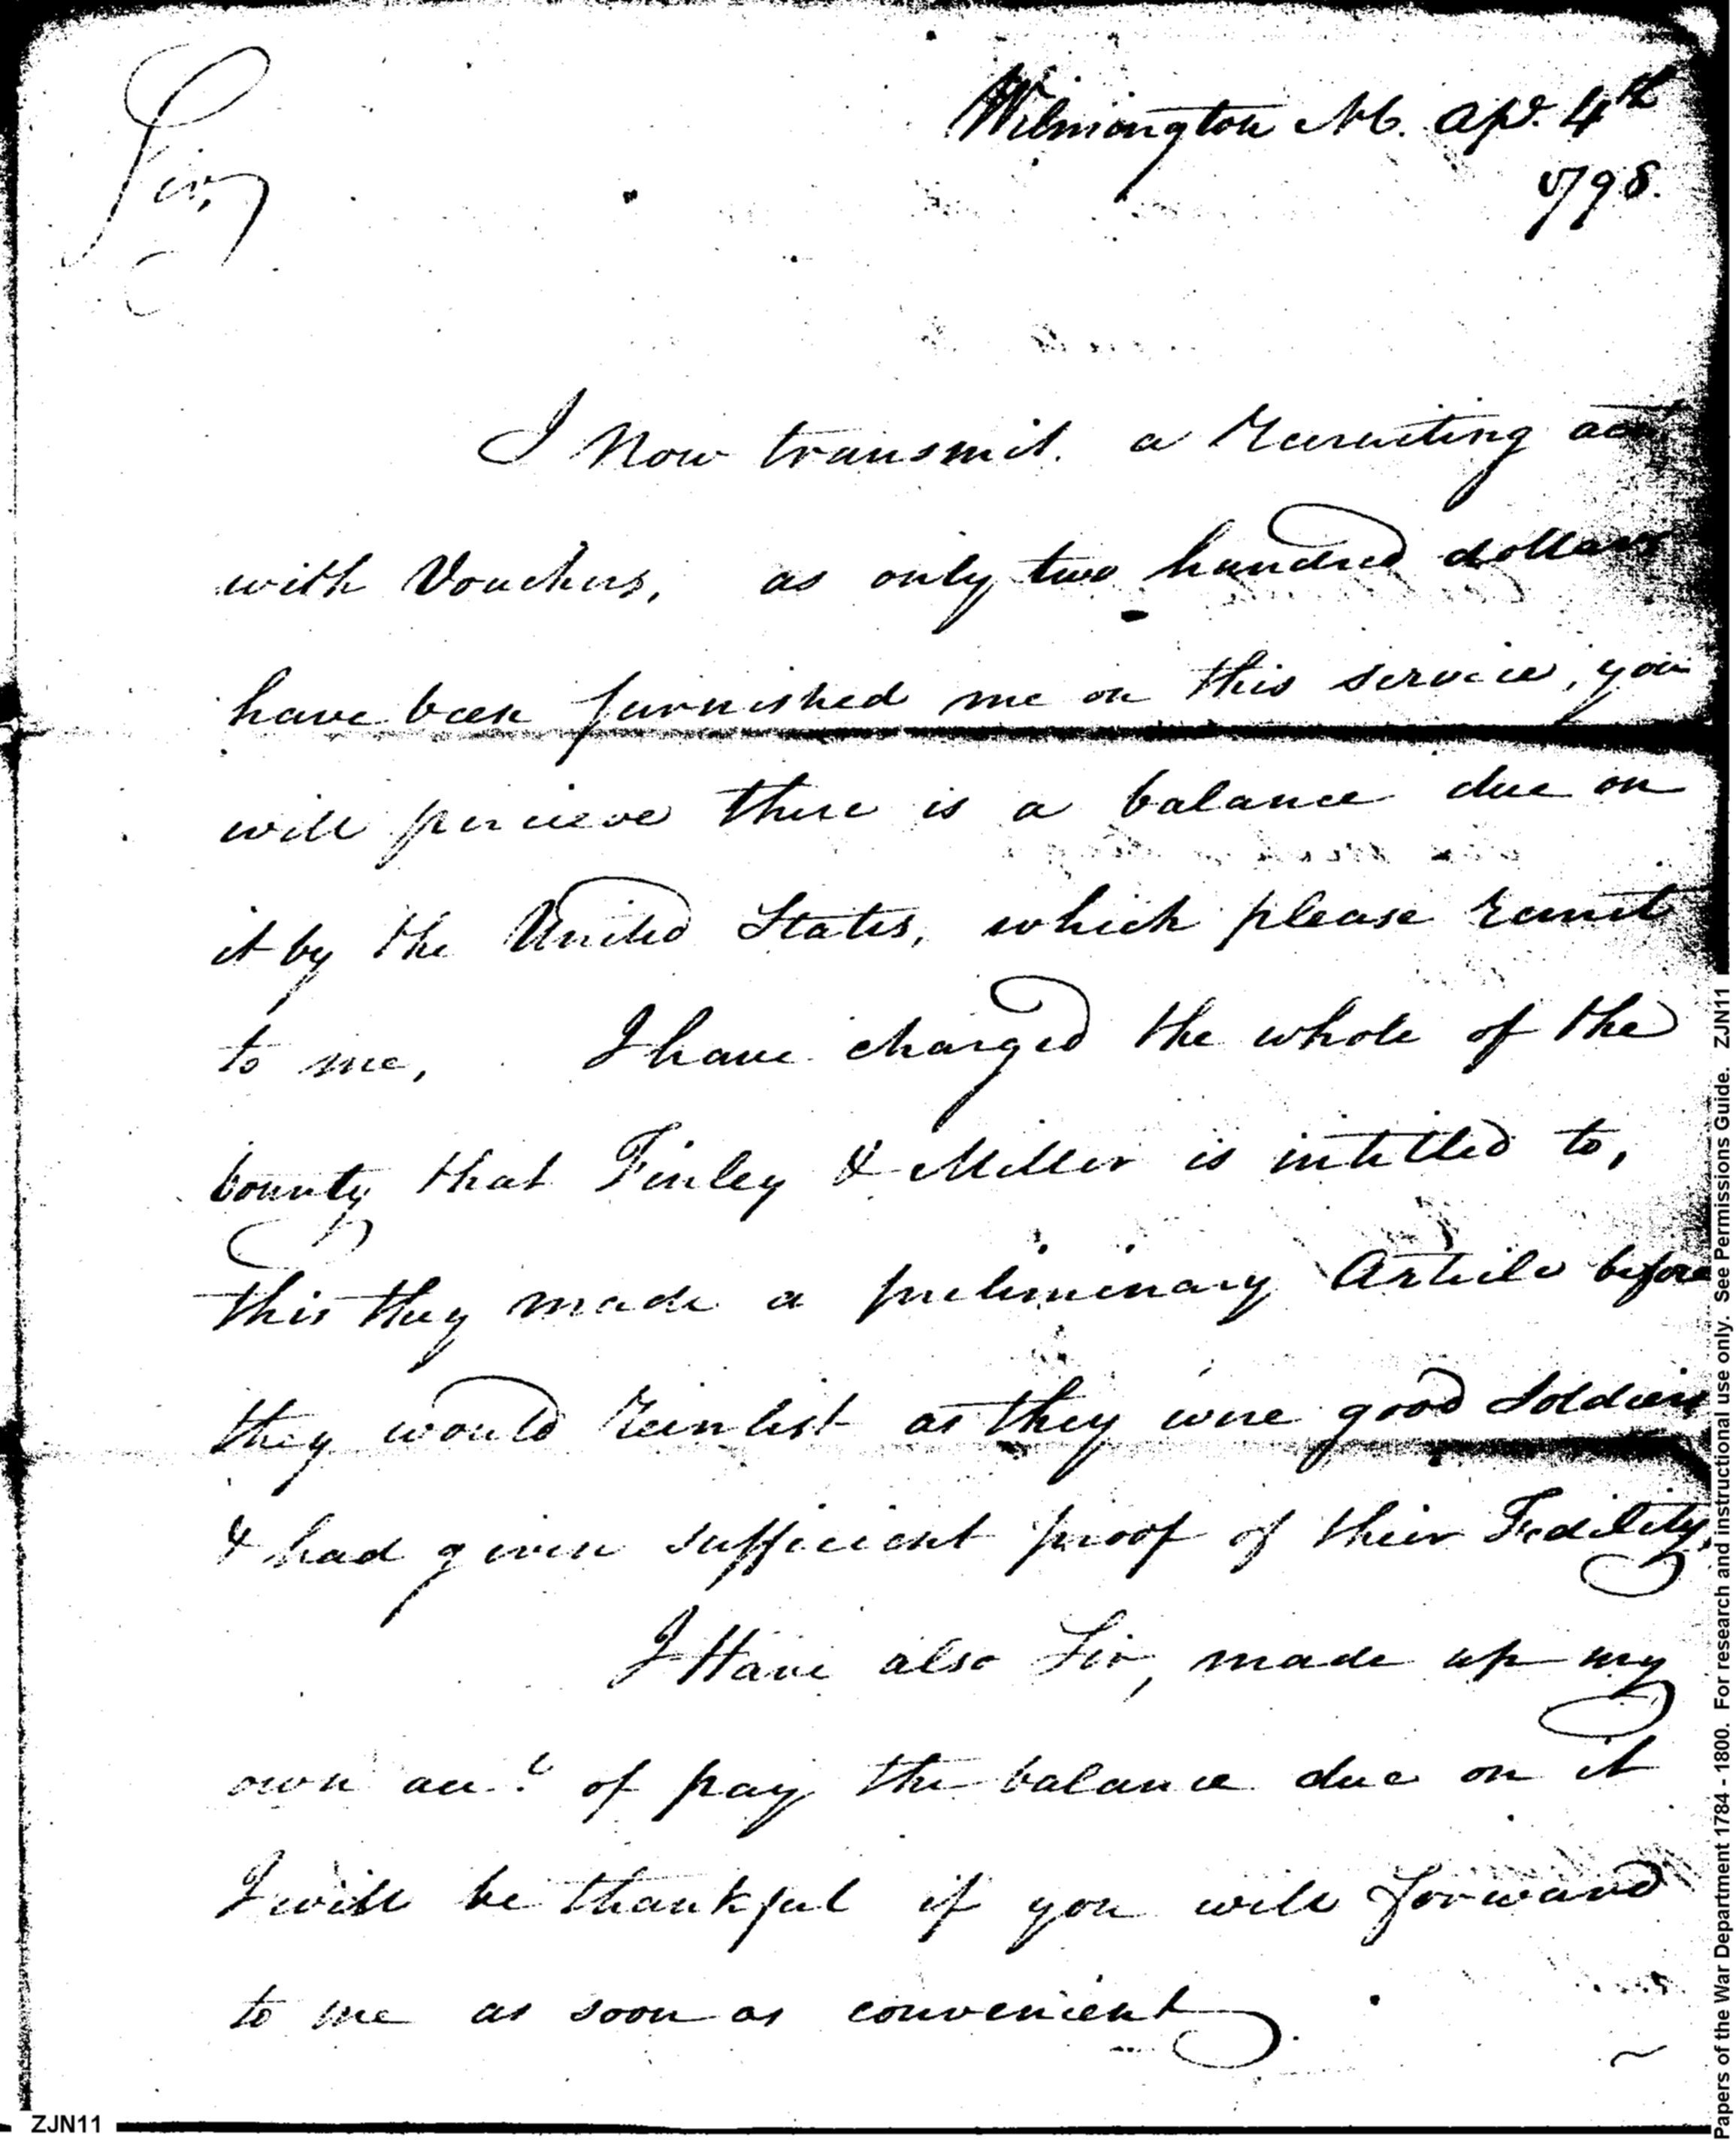 Wilmington NC. Apr. 4th
1798.
Sir,
I Now transmit. a recruiting acct
with Vouchers, as only two hundred dollars
have been furnished me on this service, you
will percieve there is a balance due on
it by the United States, which please remit
to me, I have charged the whole of the
bounty that Finley & Miller is intitled to,
this they made a preliminary Article before
they would reinlist as they were good Soldiers
& had given sufficient proof of their Fidelity,
I Have also Sir, made up my
own acct of pay the balance due on it
I will be thankful if you will forward
to me as soon as convenient
ZJN11
Papers of the War Department 1784 - 1800. For research and instructional use only. See Permissions Guide. ZJN11